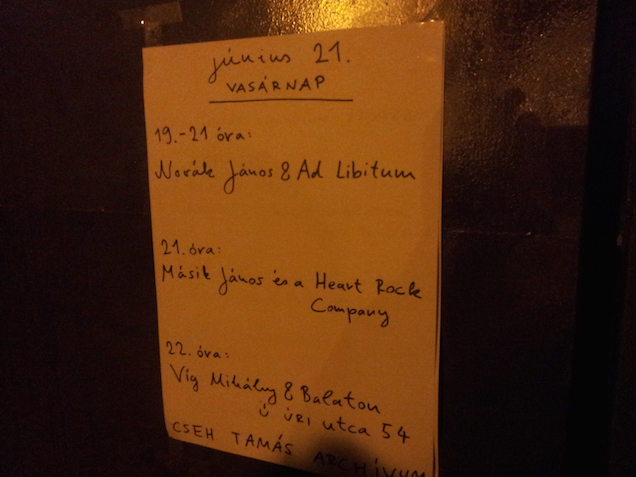 június 21.
VASÁRNAP
19.-21 óra:
Novák János & Ad Libitum
21. óra:
Másik János és a Heart Rock
Company
22. óra:
Víg Mihály & Balaton
ÚRI utca 54
CSEH TAMÁS ARCHÍVUM